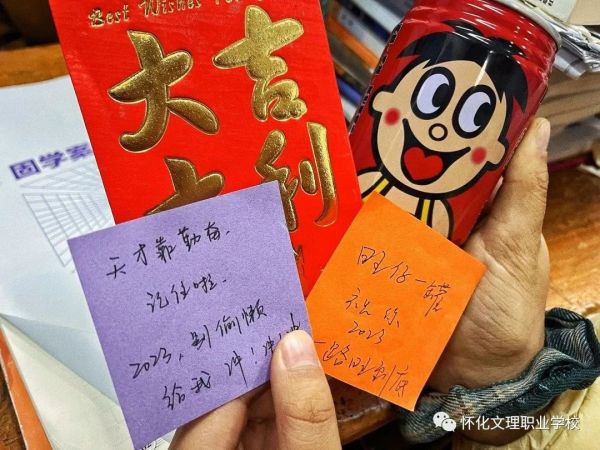 Best Wishes For
大吉
大利
固学案
天才靠勤奋.
记住啦.
2023,别偷懒
给我 冲!冲!冲
旺仔一罐
祝你
2023
一路旺到底
怀化文理职业学校